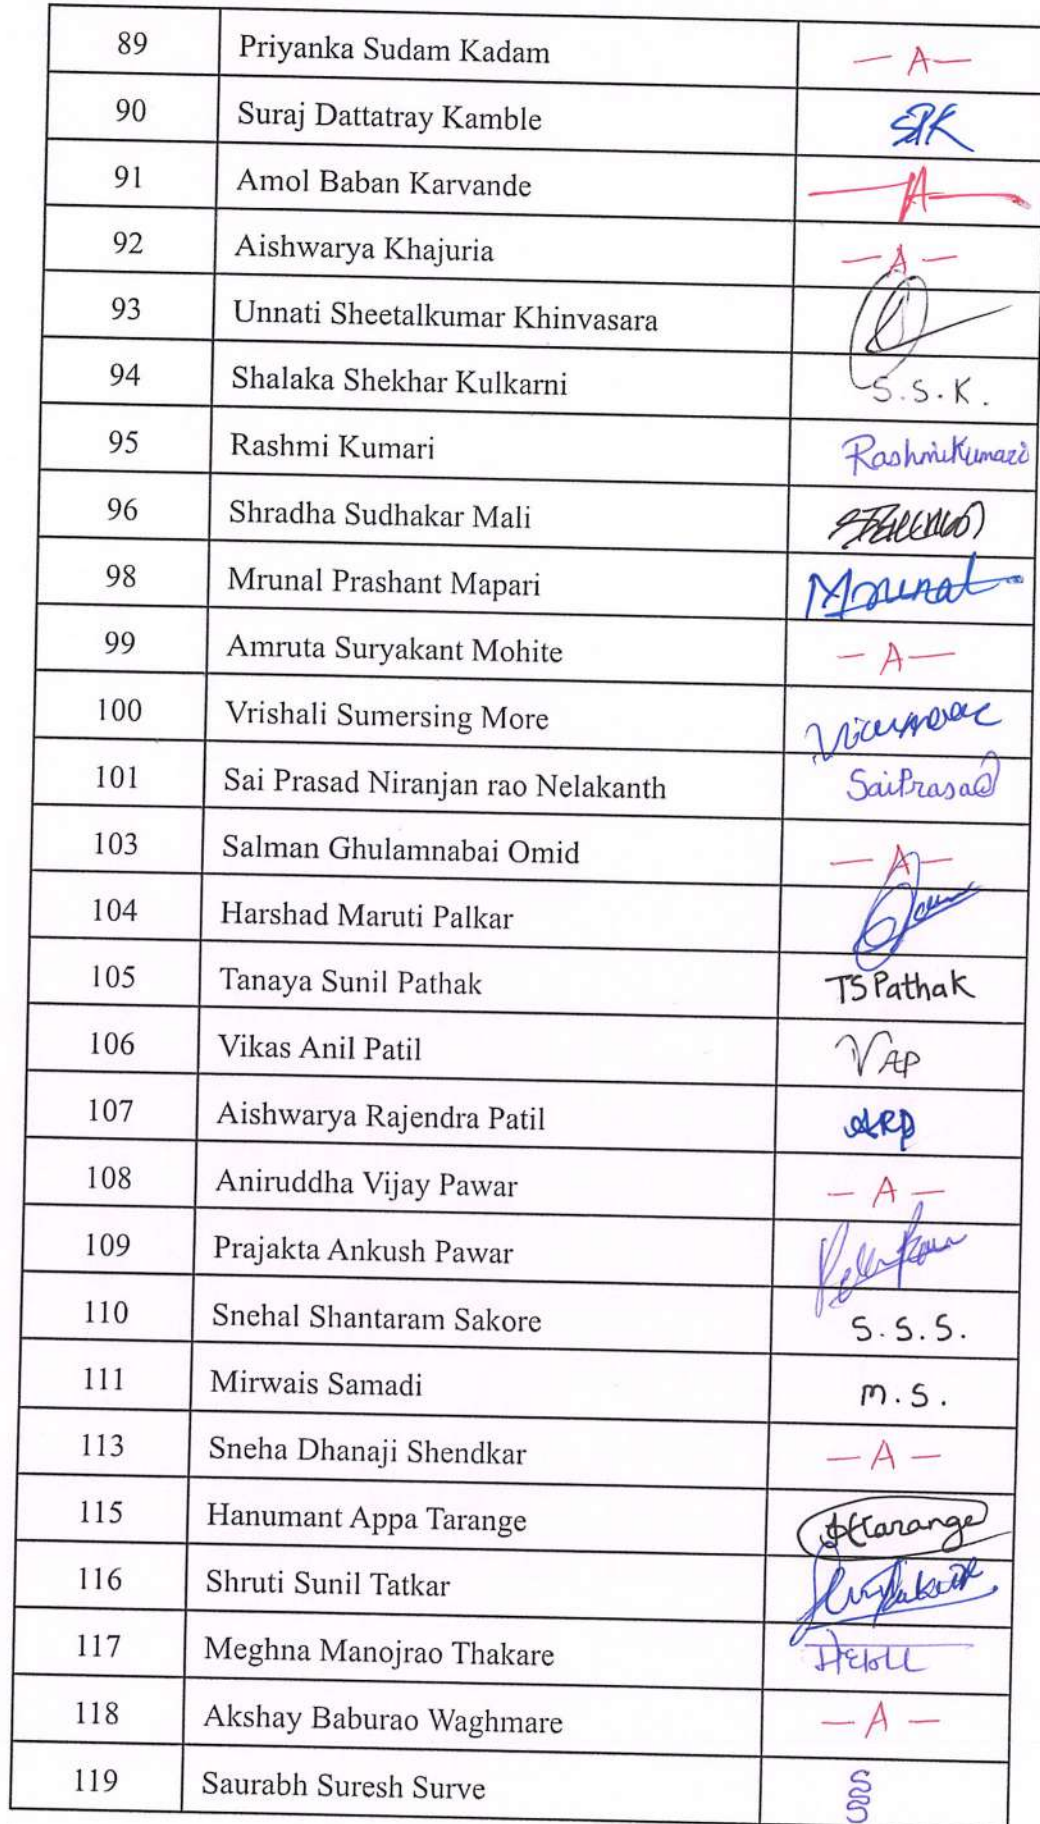 89 Priyanka Sudam Kadam — A —
90 Suraj Dattatray Kamble SPK
91 Amol Baban Karvande — A —
92 Aishwarya Khajuria — A —
93 Unnati Sheetalkumar Khinvasara
94 Shalaka Shekhar Kulkarni S.S.K.
95 Rashmi Kumari RashmiKumari
96 Shradha Sudhakar Mali
98 Mrunal Prashant Mapari Mrunal
99 Amruta Suryakant Mohite — A —
100 Vrishali Sumersing More
101 Sai Prasad Niranjan rao Nelakanth SaiPrasad
103 Salman Ghulamnabai Omid — A —
104 Harshad Maruti Palkar
105 Tanaya Sunil Pathak TSPathak
106 Vikas Anil Patil VAP
107 Aishwarya Rajendra Patil ARP
108 Aniruddha Vijay Pawar — A —
109 Prajakta Ankush Pawar
110 Snehal Shantaram Sakore S.S.S.
111 Mirwais Samadi M.S.
113 Sneha Dhanaji Shendkar — A —
115 Hanumant Appa Tarange
116 Shruti Sunil Tatkar
117 Meghna Manojrao Thakare मेघना
118 Akshay Baburao Waghmare — A —
119 Saurabh Suresh Surve SSS